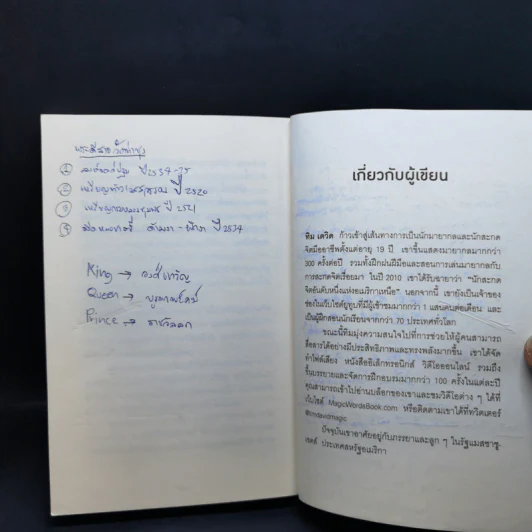 ① ปี 2534-35
② ปี 2520
ปี 2521
ปี 2534
King →
Queen →
Prince →
เกี่ยวกับผู้เขียน
ทิม เดวิด ก้าวเข้าสู่เส้นทางการเป็นนักมายากลและนักสะกด
จิตมืออาชีพตั้งแต่อายุ 19 ปี เขาขึ้นแสดงมายากลมากกว่า
300 ครั้งต่อปี รวมทั้งฝึกฝนฝีมือและสอนการเล่นมายากลกับ
การสะกดจิตเรื่อยมา ในปี 2010 เขาได้รับฉายาว่า "นักสะกด
จิตอันดับหนึ่งแห่งอเมริกาเหนือ" นอกจากนี้ เขายังเป็นเจ้าของ
ช่องในเว็บไซต์ยูทูบที่มีผู้เข้าชมมากกว่า 1 แสนคนต่อเดือน และ
เป็นผู้ฝึกสอนนักเรียนจากกว่า 70 ประเทศทั่วโลก
ขณะนี้ทิมมุ่งความสนใจไปที่การช่วยให้ผู้คนสามารถ
สื่อสารได้อย่างมีประสิทธิภาพและทรงพลังมากขึ้น เขาได้จัด
ทำไฟล์เสียง หนังสืออิเล็กทรอนิกส์ วิดีโอออนไลน์ รวมถึง
ขึ้นบรรยายและจัดการฝึกอบรมมากกว่า 100 ครั้งในแต่ละปี
คุณสามารถเข้าไปอ่านบล็อกของเขาและชมวิดีโอต่าง ๆ ได้ที่
เว็บไซต์ MagicWordsBook.com หรือติดตามเขาได้ที่ทวิตเตอร์
@timdavidmagic
ปัจจุบันเขาอาศัยอยู่กับภรรยาและลูก ๆ ในรัฐแมสซาชู-
เซตส์ ประเทศสหรัฐอเมริกา